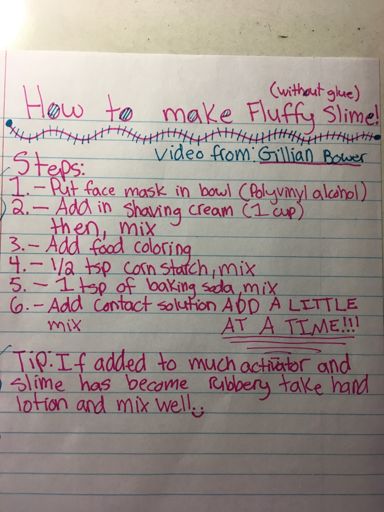 (without glue)
How to make Fluffy Slime!
Video from: Gillian Bower
Steps:
1.- Put face mask in bowl (Polyvinyl alcohol)
2.- Add in Shaving cream (1 cup)
then, mix
3.- Add food coloring
4.- 1/2 tsp corn starch, mix
5.- 1 tsp of baking soda, mix
6.- Add Contact solution ADD A LITTLE
mix AT A TIME!!!
Tip: If added to much activator and
slime has become rubbery take hand
lotion and mix well